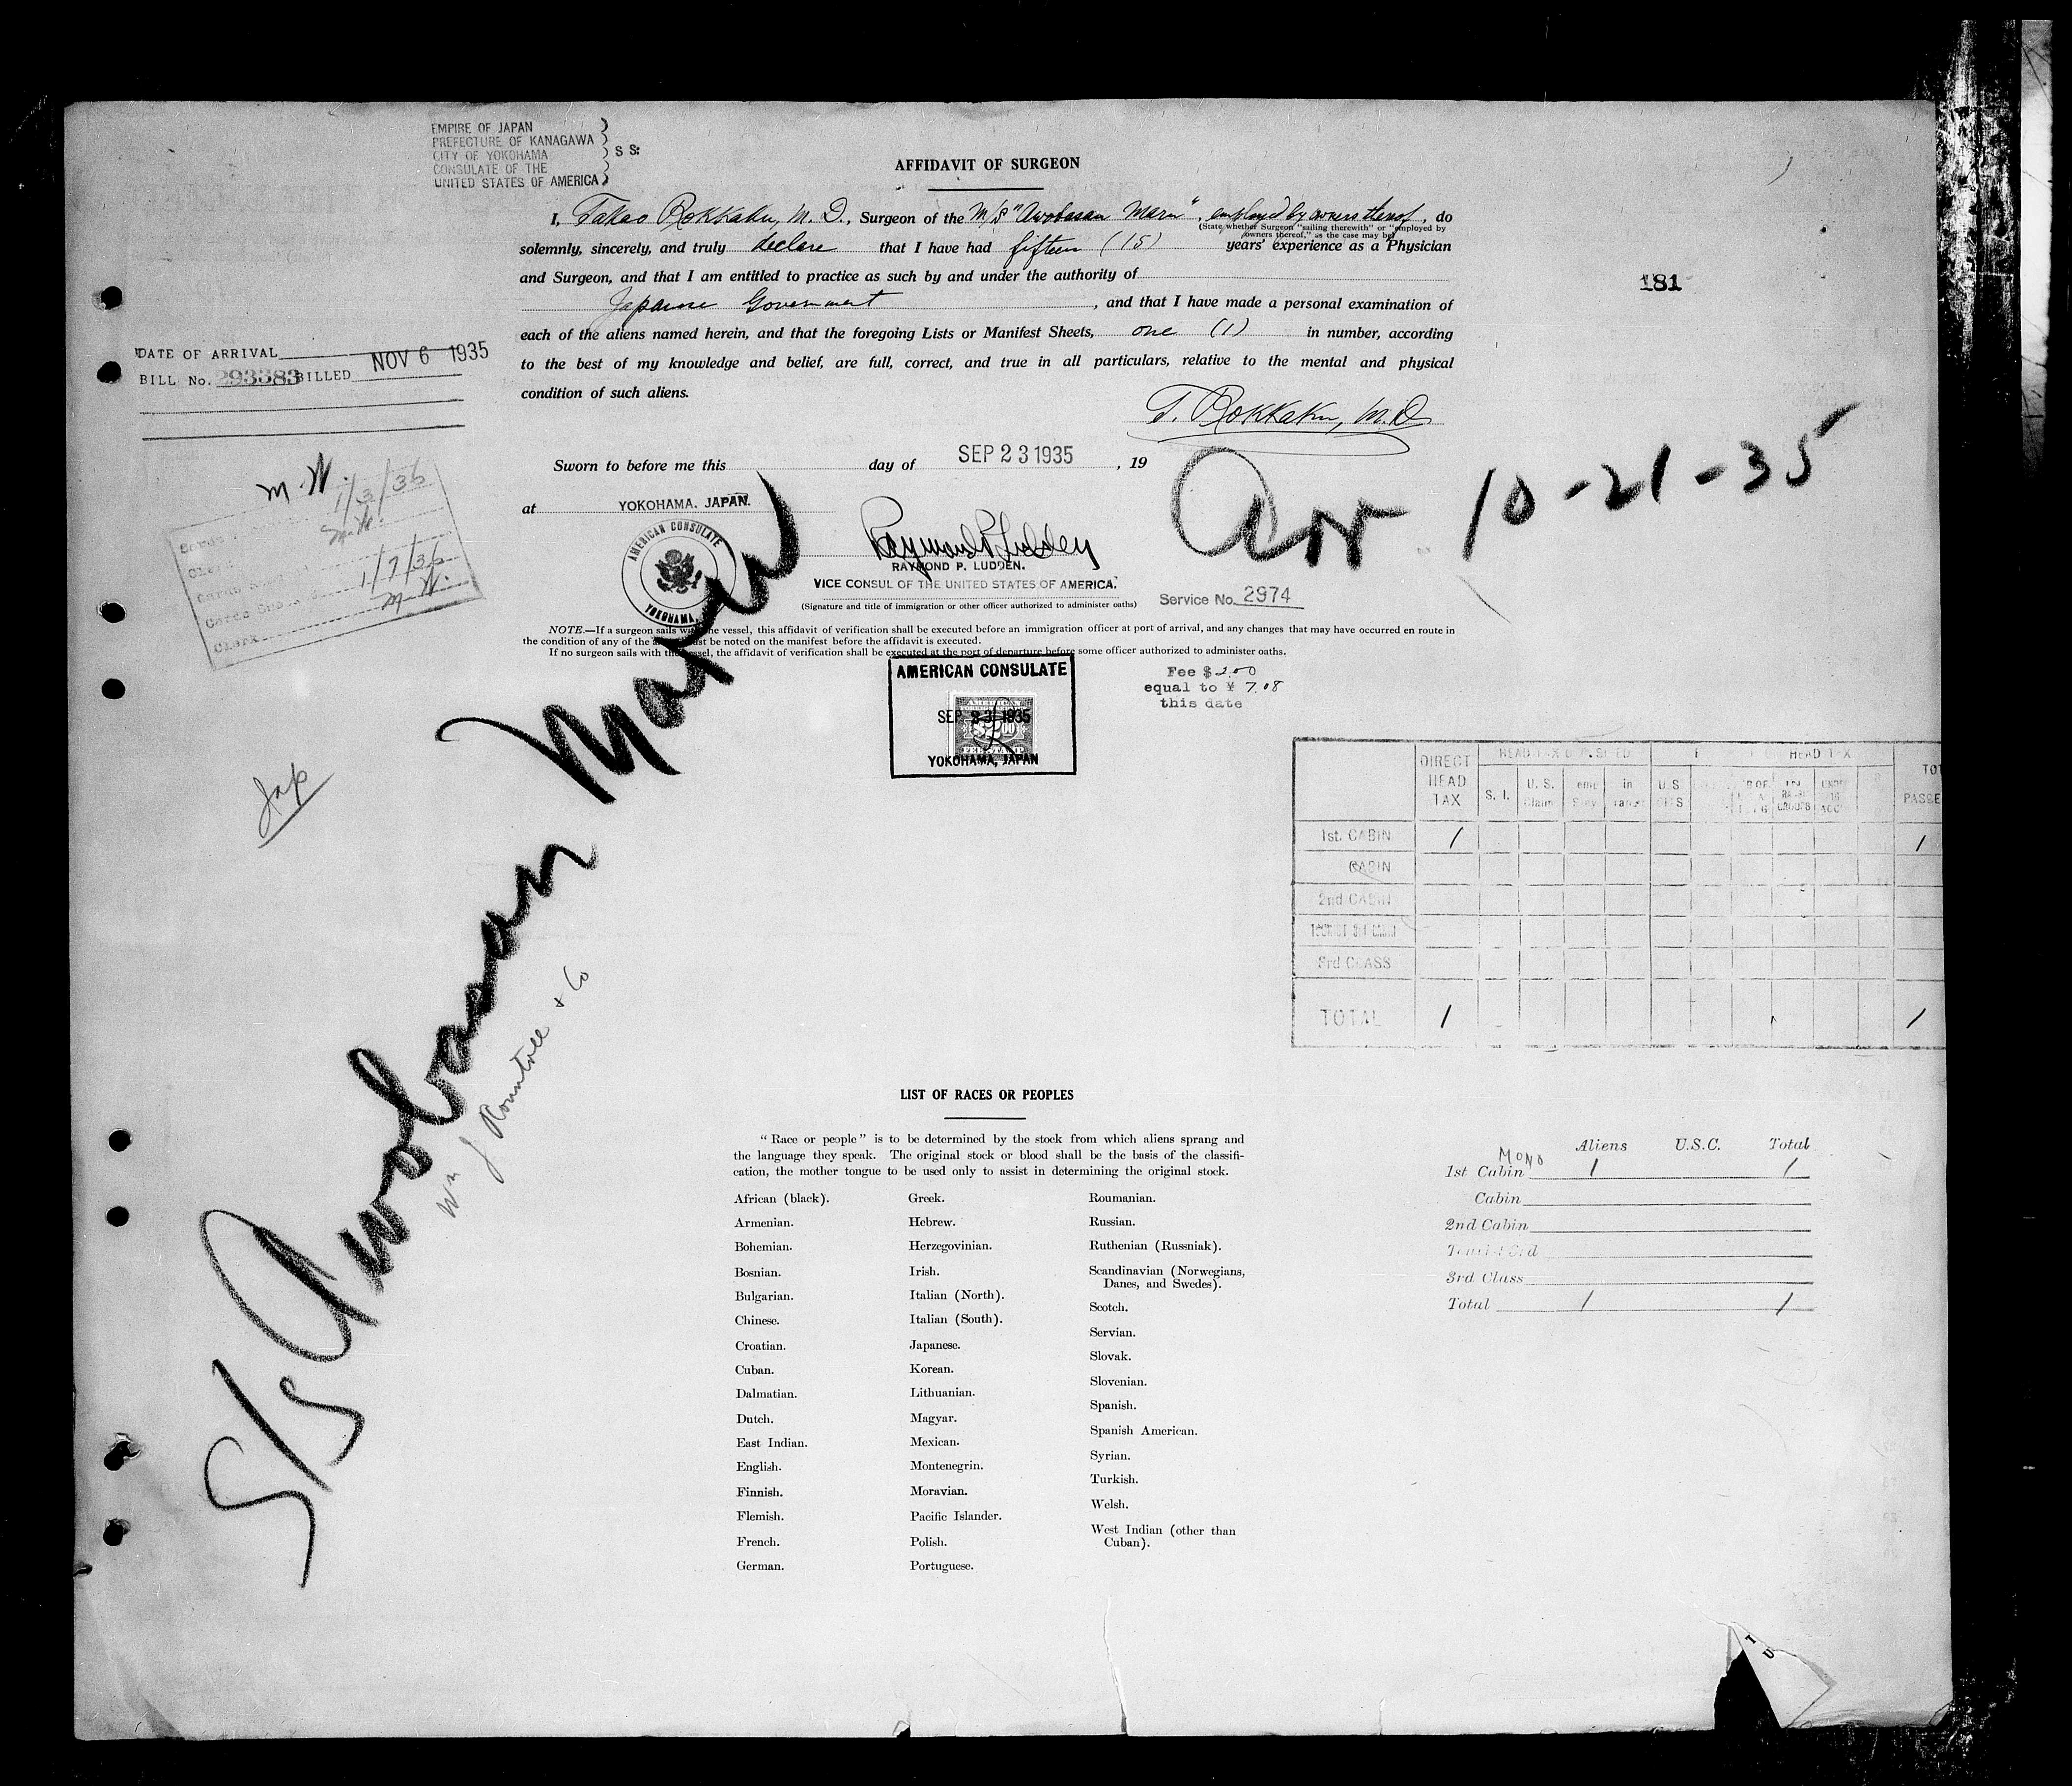 EMPIRE OF JAPAN )
PREFECTURE OF KANAGAWA )
CITY OF YOKOHAMA ) S S:
CONSULATE OF THE )
UNITED STATES OF AMERICA )
AFFIDAVIT OF SURGEON
I, Takao Rokkaku, M. D., Surgeon of the M/S "Awobasan Maru", employed by owners thereof, do
(State whether Surgeon "sailing therewith" or "employed by
owners thereof," as the case may be)
solemnly, sincerely, and truly declare that I have had fifteen (15) years' experience as a Physician
and Surgeon, and that I am entitled to practice as such by and under the authority of
Japanese Government, and that I have made a personal examination of
each of the aliens named herein, and that the foregoing Lists or Manifest Sheets, one (1) in number, according
to the best of my knowledge and belief, are full, correct, and true in all particulars, relative to the mental and physical
condition of such aliens.
T. Rokkaku, M.D.
181
DATE OF ARRIVAL
BILL No. 293383 BILLED NOV 6 1935
Sworn to before me this day of SEP 23 1935, 19
at YOKOHAMA, JAPAN.
AMERICAN CONSULATE
YOKOHAMA,
Raymond P. Ludden
RAYMOND P. LUDDEN.
VICE CONSUL OF THE UNITED STATES OF AMERICA.
(Signature and title of immigration or other officer authorized to administer oaths)
Service No. 2974
Arr 10-21-35
M.W.
1/3/36
M.W.
Clerk
1/7/36
Clerk M W.
NOTE.—If a surgeon sails with the vessel, this affidavit of verification shall be executed before an immigration officer at port of arrival, and any changes that may have occurred en route in
the condition of any of the must be noted on the manifest before the affidavit is executed.
If no surgeon sails with the vessel, the affidavit of verification shall be executed at the port of departure before some officer authorized to administer oaths.
AMERICAN CONSULATE
SEP 23 1935
YOKOHAMA, JAPAN
Fee $ 2.00
equal to ¥ 7.08
this date
Jap
S/S Awobasan Maru
Wm J Rountree & Co
DIRECT HEAD TAX
HEAD TAX
S. I.
U. S.
U.S
1st. CABIN 1 1
CABIN
2nd CABIN
3rd CLASS
TOTAL 1 1
LIST OF RACES OR PEOPLES
"Race or people" is to be determined by the stock from which aliens sprang and
the language they speak. The original stock or blood shall be the basis of the classifi-
cation, the mother tongue to be used only to assist in determining the original stock.
African (black).
Armenian.
Bohemian.
Bosnian.
Bulgarian.
Chinese.
Croatian.
Cuban.
Dalmatian.
Dutch.
East Indian.
English.
Finnish.
Flemish.
French.
German.
Greek.
Hebrew.
Herzegovinian.
Irish.
Italian (North).
Italian (South).
Japanese.
Korean.
Lithuanian.
Magyar.
Mexican.
Montenegrin.
Moravian.
Pacific Islander.
Polish.
Portuguese.
Roumanian.
Russian.
Ruthenian (Russniak).
Scandinavian (Norwegians,
Danes, and Swedes).
Scotch.
Servian.
Slovak.
Slovenian.
Spanish.
Spanish American.
Syrian.
Turkish.
Welsh.
West Indian (other than
Cuban).
Aliens U.S.C. Total
MONO
1st Cabin 1 1
Cabin
2nd Cabin
3rd Class
Total 1 1